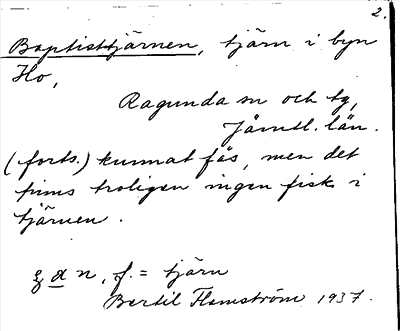 2.
Baptisttjärnen, tjärn i byn
Ho,
Ragunda sn och tg,
Jämtl. län.
(forts.) kunnat fås, men det
finns troligen ingen fisk i
tjärnen.
n, f. = tjärn
Bertil Flemström 1937.